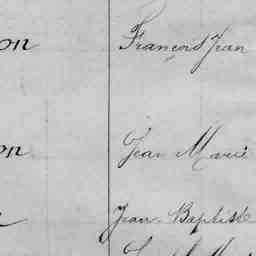 on François Jean
on Jean Marie
Jean Baptiste